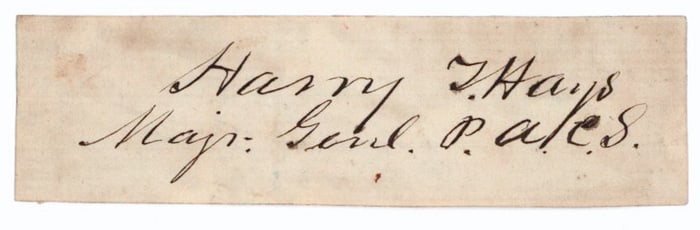 Harry T. Hays
Majr. Genl. P. A. C. S.